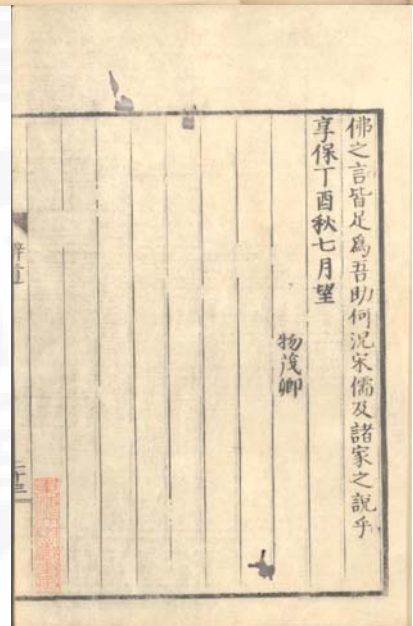 佛之言皆足爲吾助何況宋儒及諸家之說乎
享保丁酉秋七月望
物茂卿
辨道
二十三